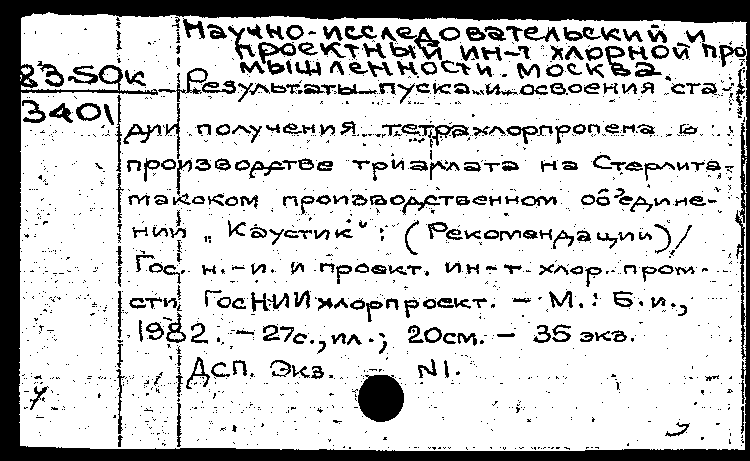 Научно-исследовательский и
проектный ин-т хлорной про
мышленности. Москва.
83-50к
Результаты пуска и освоения ста-
3401
дии получения тетрахлорпропена в
производстве триаллата на Стерлита-
макском производственном об'едине-
нии "Каустик": (Рекомендации)/
Гос. н.-и. и проект. ин-т хлор. пром-
сти ГосНИИхлорпроект. - М.: Б.и.,
1982. - 27с., ил.; 20см. - 35 экз.
ДСП. Экз. N1.